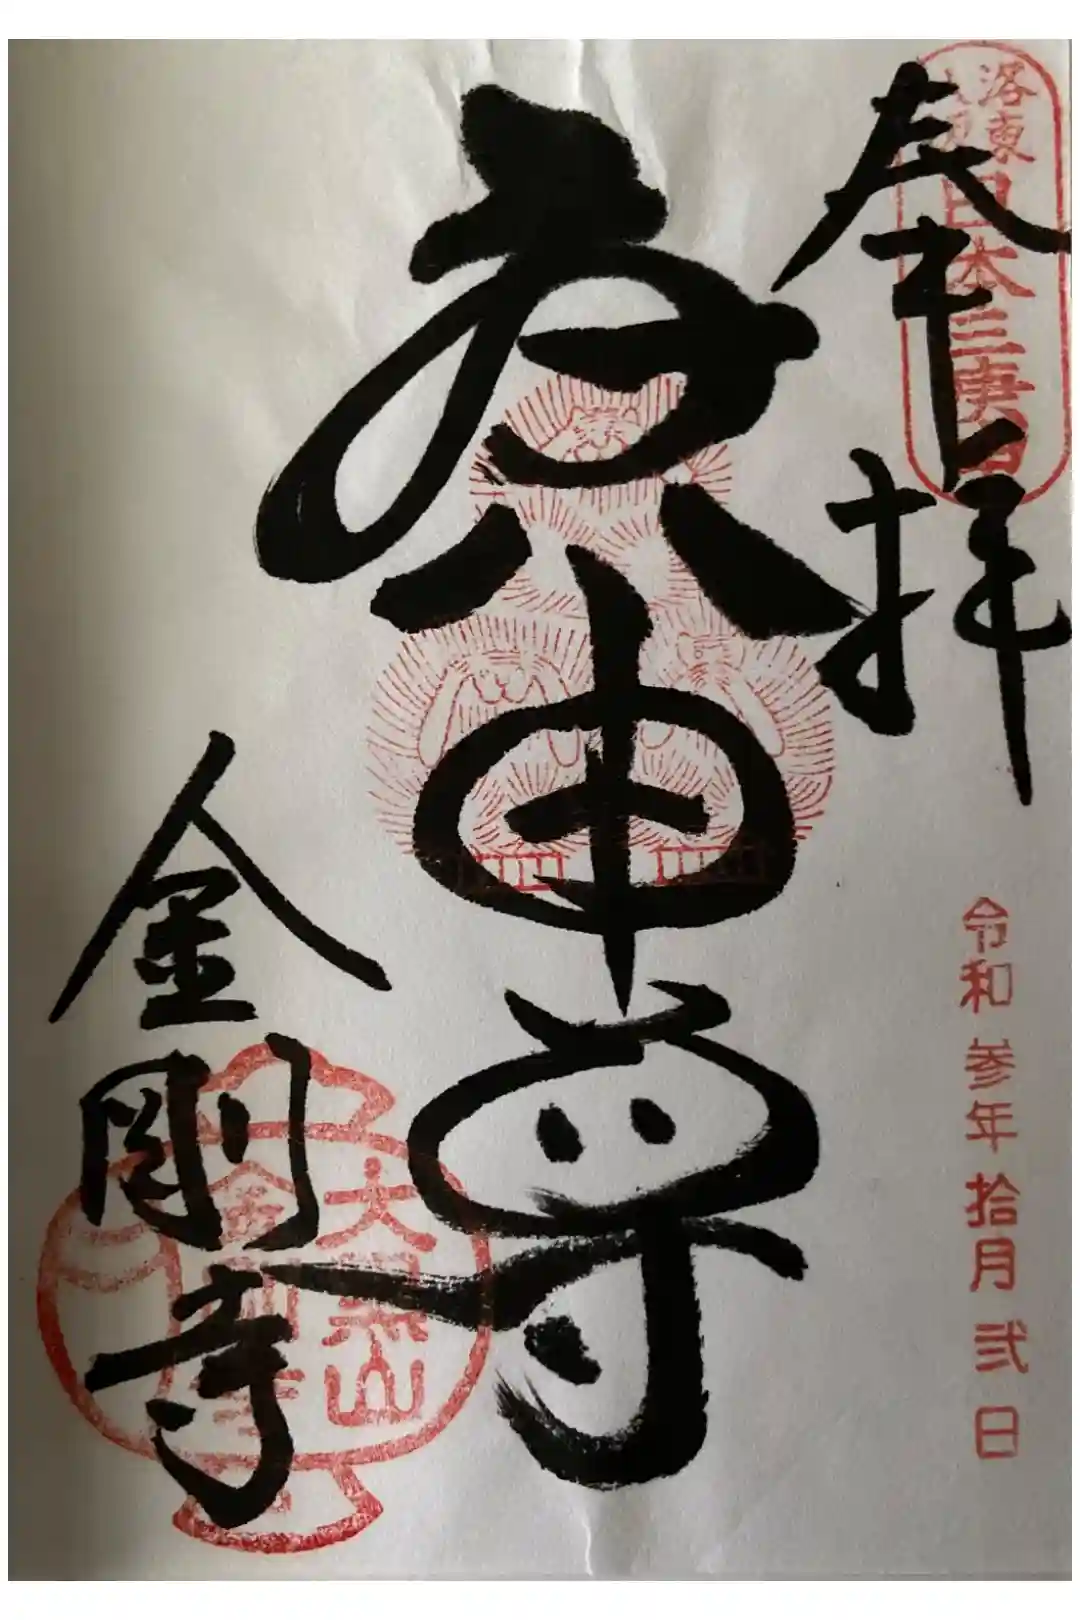 奉拝
洛東
日本三庚申
令和参年拾月弐日
庚申尊
金剛寺
大黒山
金剛寺